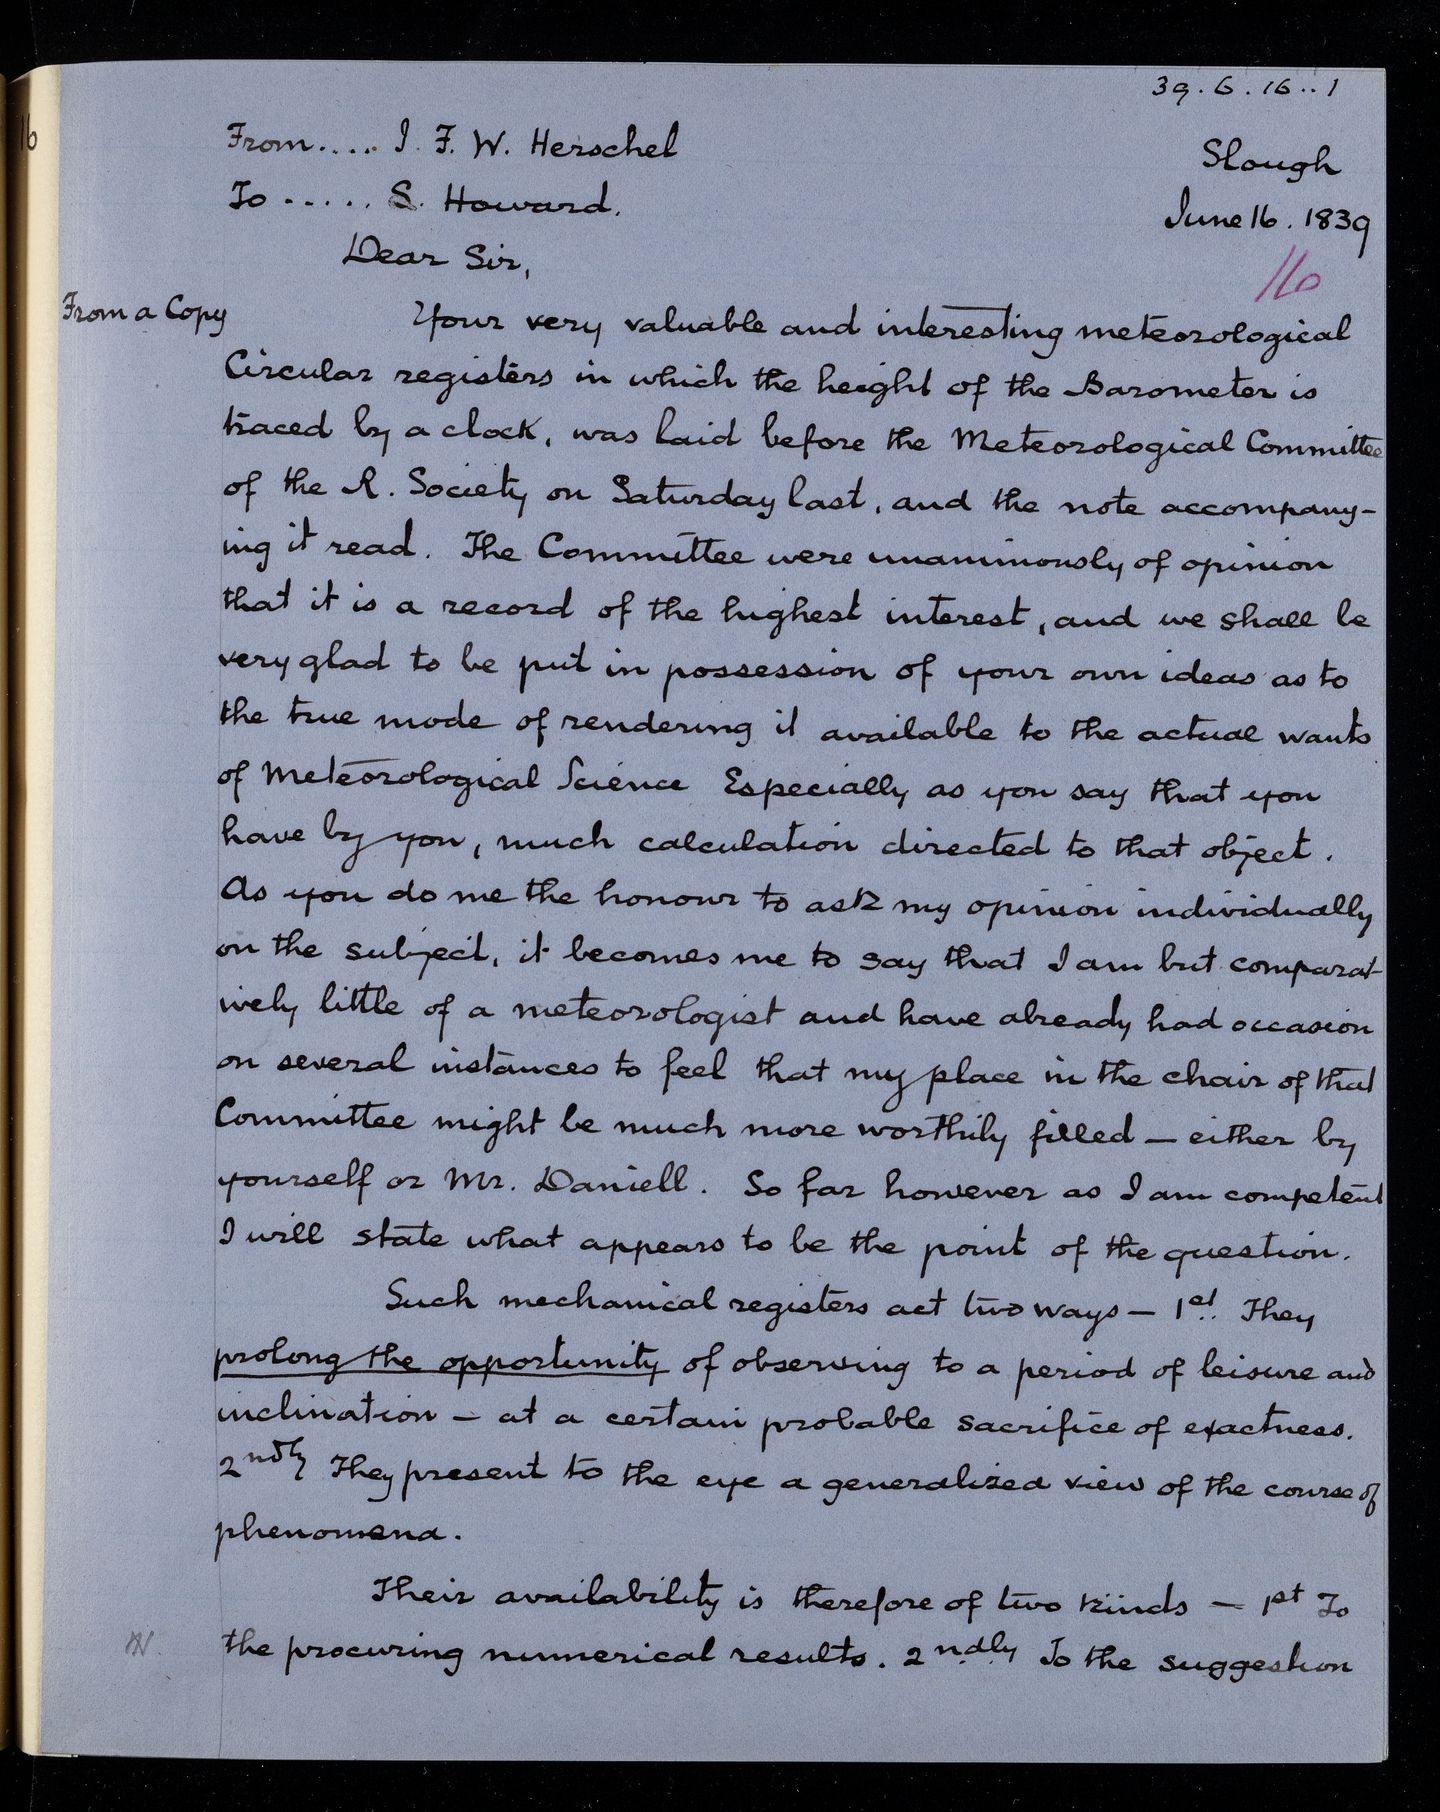 39.6.16..1
16
From.... J. F. W. Herschel
Slough
To ..... S. Howard.
June 16. 1839
Dear Sir,
16
From a Copy
Your very valuable and interesting meteorological
Circular registers in which the height of the Barometer is
traced by a clock, was laid before the Meteorological Committee
of the R. Society on Saturday last, and the note accompany-
ing it read. The Committee were unanimously of opinion
that it is a record of the highest interest, and we shall be
very glad to be put in possession of your own ideas as to
the true mode of rendering it available to the actual wants
of Meteorological Science Especially as you say that you
have by you, much calculation directed to that object.
As you do me the honour to ask my opinion individually
on the subject, it becomes me to say that I am but comparat-
ively little of a meteorologist and have already had occasion
on several instances to feel that my place in the chair of that
Committee might be much more worthily filled — either by
yourself or Mr. Daniell. So far however as I am competent
I will state what appears to be the point of the question.
Such mechanical registers act two ways — 1st. They
prolong the opportunity of observing to a period of leisure and
inclination — at a certain probable sacrifice of exactness.
2ndly They present to the eye a generalized view of the course of
phenomena.
Their availability is therefore of two kinds — 1st To
the procuring numerical results. 2ndly To the suggestion